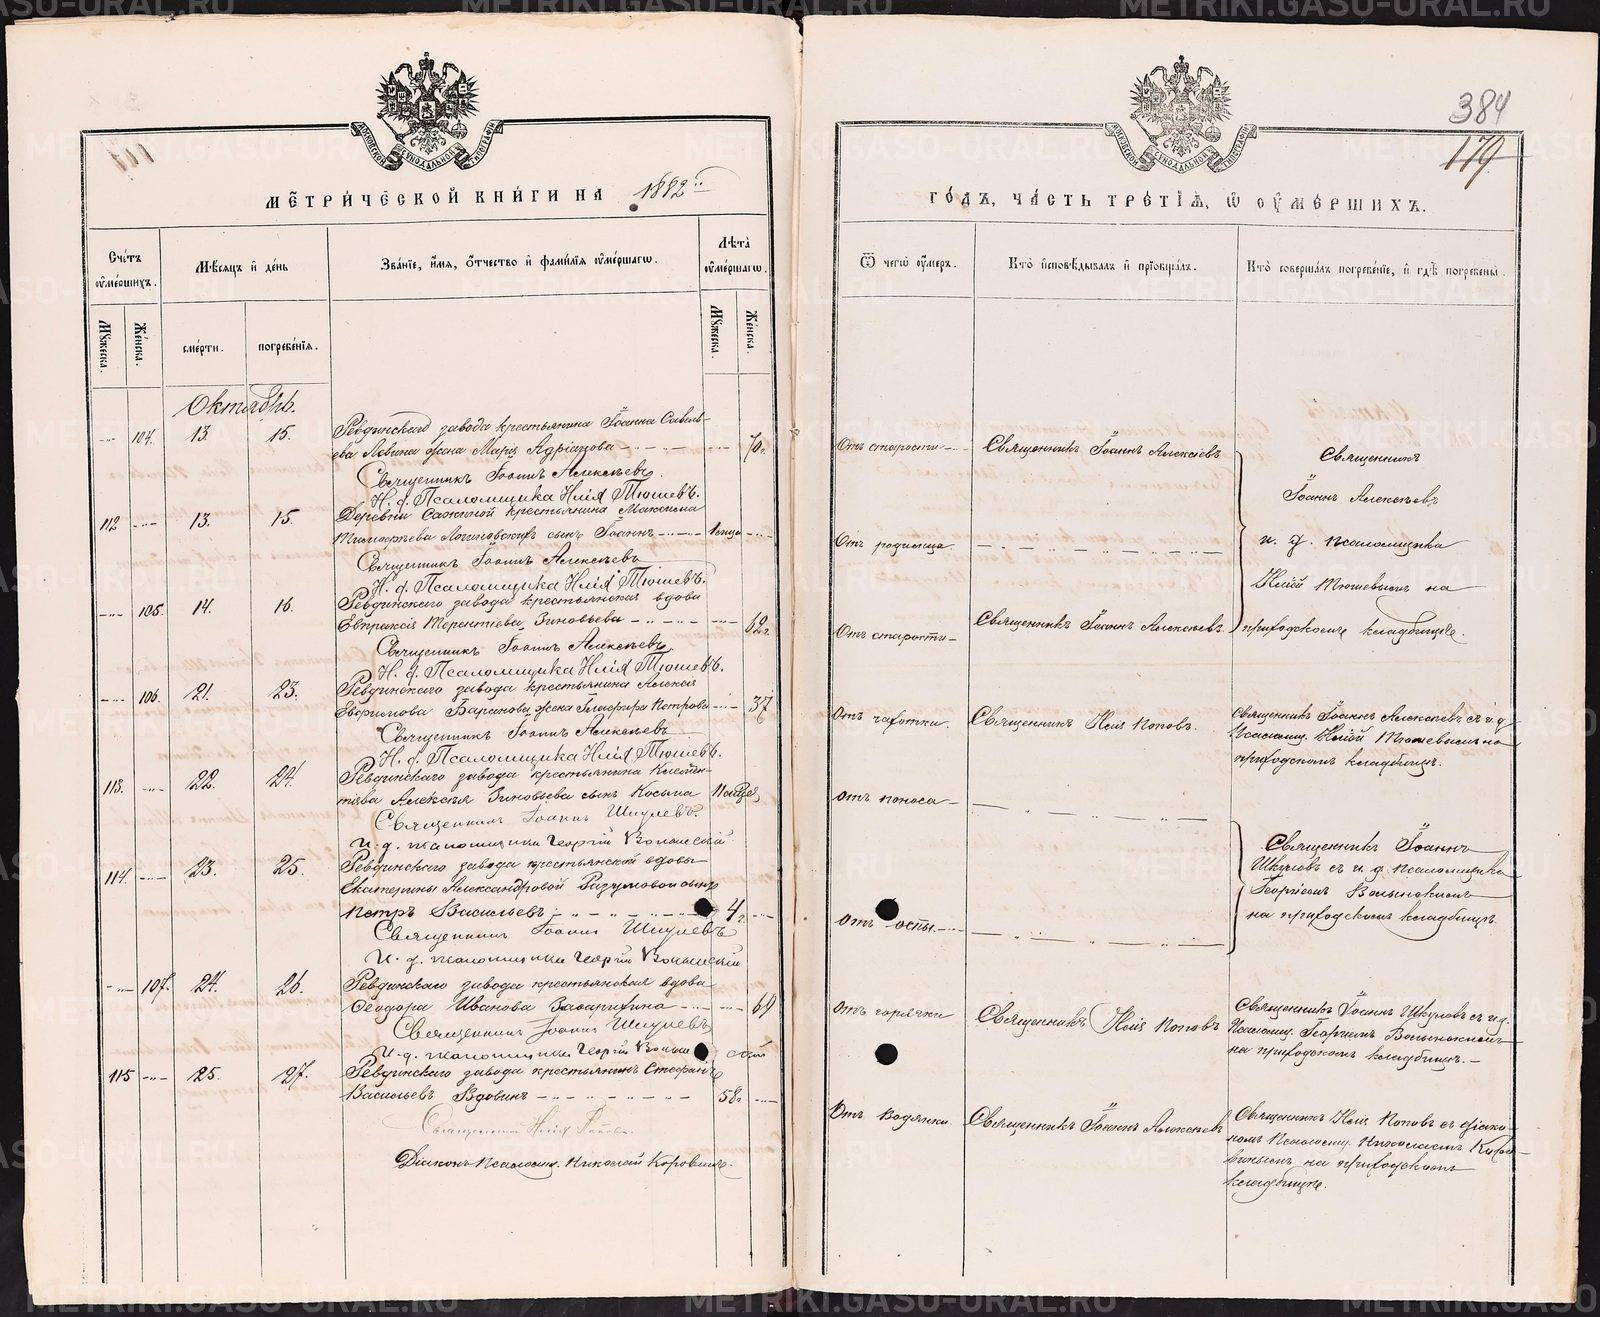 384
179
МЕТРИЧЕСКОЙ КНИГИ НА 1882
ГОДЪ, ЧАСТЬ ТРЕТІЯ, Ѿ ОУМЕРШИХЪ.
Счетъ оумершихъ.
Мѣсяцъ и день
Званіе, имя, отчество и фамилія оумершагѡ.
Лѣта оумершагѡ.
Мужеска.
Женска.
смерти.
погребенія.
Мужеска.
Женска.
Ѿ чегѡ оумеръ.
Кто исповѣдывалъ и пріобщалъ.
Кто совершалъ погребеніе, и гдѣ погребены.
Октябрь.
104. 13. 15. Ревдинскаго завода крестьянина Іоанна Савель-
ева Левина жена Марія Адріанова 70 г.
Отъ старости Священникъ Іоаннъ Алексѣевъ
Священникъ Іоаннъ Алексѣевъ
Н. д. Псаломщика Илія Тюшевъ.
112 13. 15. Деревни крестьянина Максима
Тимофѣева Логиновскихъ сынъ Іоаннъ
Отъ родимца
Священникъ Іоаннъ Алексѣевъ
Н. д. Псаломщика Илія Тюшевъ.
105. 14. 16. Ревдинскаго завода крестьянская вдова
Евпраксія Терентіева Зиновьева 62 г.
Отъ старости Священникъ Іоаннъ Алексѣевъ.
Священникъ Іоаннъ Алексѣевъ
Н. д. Псаломщика Илія Тюшевъ.
Священникъ
Іоаннъ Алексѣевъ
и. д. псаломщика
Иліей Тюшевымъ на
приходскомъ кладбищѣ.
106. 21. 23. Ревдинскаго завода крестьянина Алексѣя
Евфимова Баранова жена Глафира Петрова 37
Отъ чахотки. Священникъ Илія Поповъ.
Священникъ Іоаннъ Алексѣевъ съ и. д.
Псаломщ. Иліей Тюшевымъ на
приходскомъ кладбищѣ.
Священникъ Іоаннъ Алексѣевъ
Н. д. Псаломщика Илія Тюшевъ.
113. 22. 24. Ревдинскаго завода крестьянина Климен-
тіева Алексѣя Зиновьева сынъ Косьма
Отъ поноса
Священникъ Іоаннъ Шкулевъ.
и. д. псаломщика Георгій Волынскій
114. 23. 25. Ревдинскаго завода крестьянской вдовы
Екатерины Александровой Разумовой сынъ
Петръ Васильевъ 4 г.
Отъ оспы.
Священникъ Іоаннъ Шкулевъ
и. д. псаломщика Георгій Волынскій
Священникъ Іоаннъ
Шкулевъ съ и. д. псаломщика
Георгіемъ Волынскимъ
на приходскомъ кладбищѣ.
107. 24. 26. Ревдинскаго завода крестьянская вдова
Ѳеодора Иванова 69
Отъ горячки Священникъ Илія Поповъ
Священникъ Іоаннъ Шкулевъ съ и. д.
Псаломщ. Георгіемъ Волынскимъ
на приходскомъ кладбищѣ.
Священникъ Іоаннъ Шкулевъ
и. д. псаломщика Георгій Волынскій
115 25. 27. Ревдинскаго завода крестьянинъ Стефанъ
Васильевъ Вдовинъ 58.
Отъ водянки. Священникъ Іоаннъ Алексѣевъ
Священникъ Илія Поповъ съ діако-
номъ Псаломщ. Николаемъ Коро-
винымъ на приходскомъ
кладбищѣ.
Священникъ Илія Поповъ.
Діаконъ Псаломщ. Николай Коровинъ.
METRIKI.GASU-URAL.RU